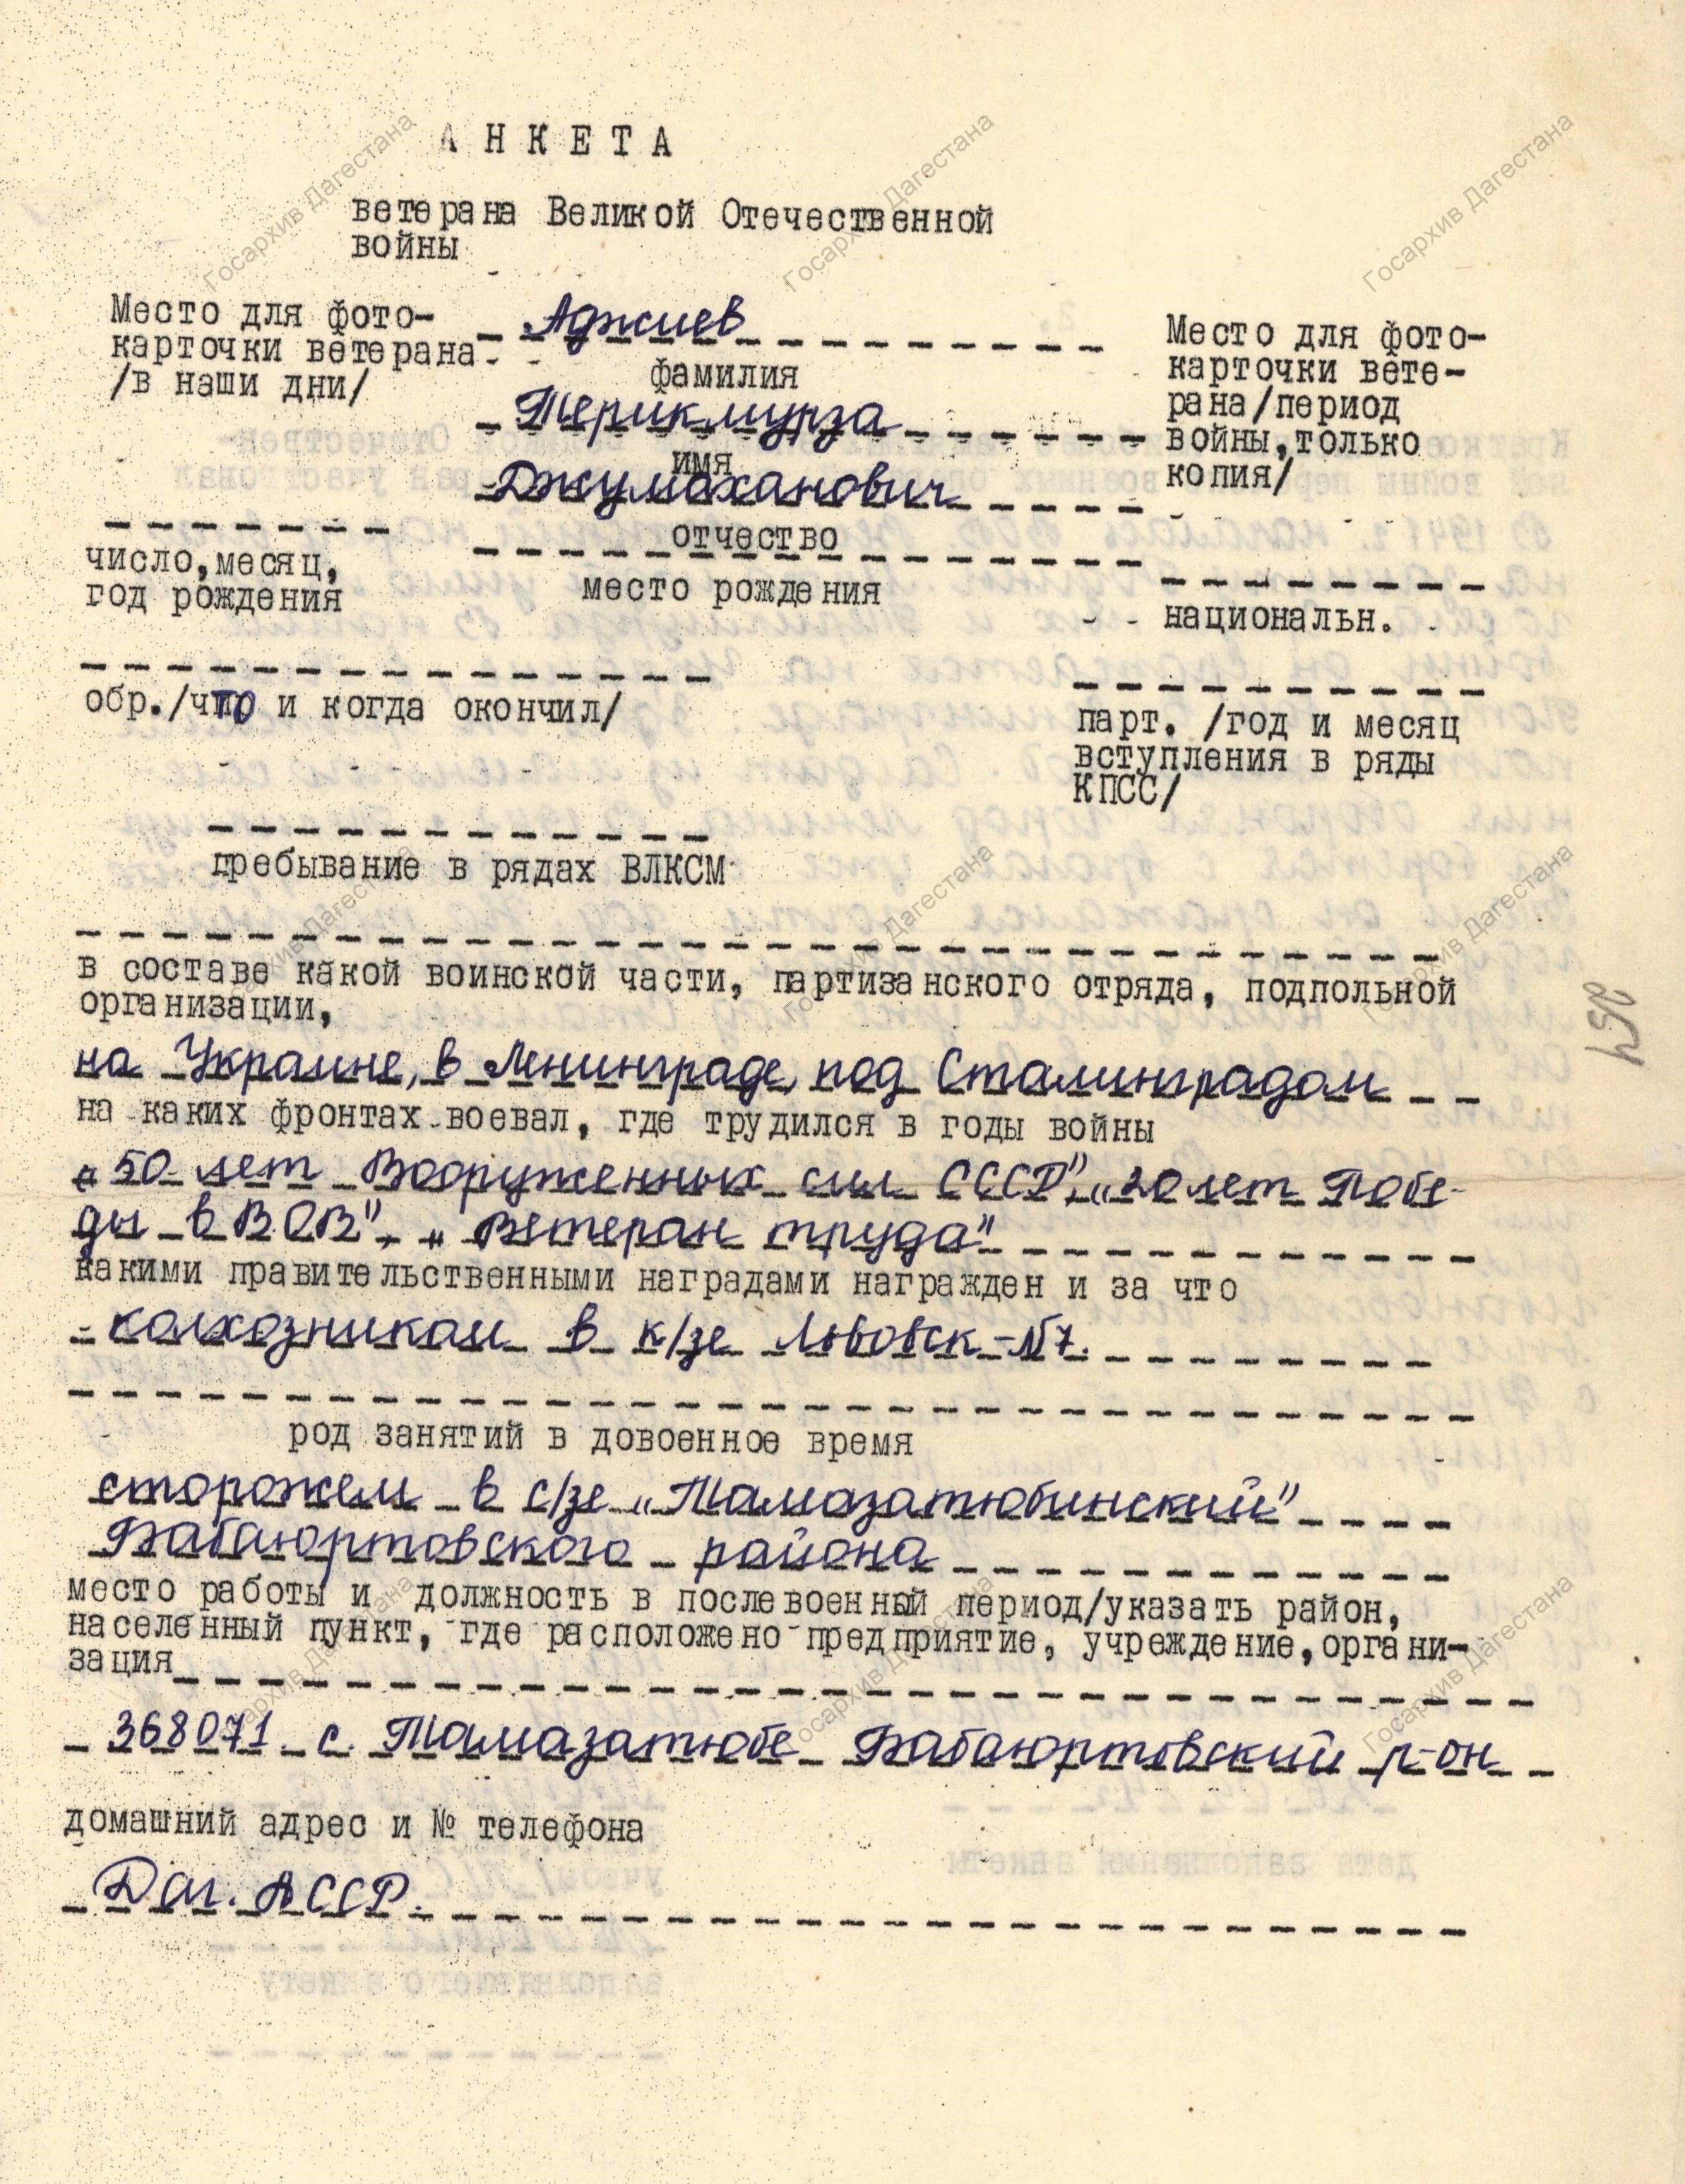 АНКЕТА
ветерана Великой Отечественной
войны
Место для фото-
карточки ветерана
/в наши дни/
Аджиев
фамилия
Терикмурза
имя
Джумаханович
отчество
Место для фото-
карточки вете-
рана/период
войны, только
копия/
число, месяц,
год рождения
место рождения
национальн.
обр./что и когда окончил/
парт. /год и месяц
вступления в ряды
КПСС/
пребывание в рядах ВЛКСМ
в составе какой воинской части, партизанского отряда, подпольной
организации,
на Украине, в Ленинграде, под Сталинградом
на каких фронтах воевал, где трудился в годы войны
„50 лет Вооруженных сил СССР", „20 лет Побе-
ды в В.О.В", „Ветеран труда"
какими правительственными наградами награжден и за что
колхозником в к/зе Львовск-№7.
род занятий в довоенное время
сторожем в с/зе „Тамазатюбинский"
Бабаюртовского района
место работы и должность в послевоенный период/указать район,
населенный пункт, где расположено предприятие, учреждение, органи-
зация
368071 с. Тамазатюбе Бабаюртовский р-он
домашний адрес и № телефона
Даг. АССР.
264
Госархив Дагестана
Госархив Дагестана
Госархив Дагестана
Госархив Дагестана
Госархив Дагестана
Госархив Дагестана
Госархив Дагестана
Госархив Дагестана
Госархив Дагестана